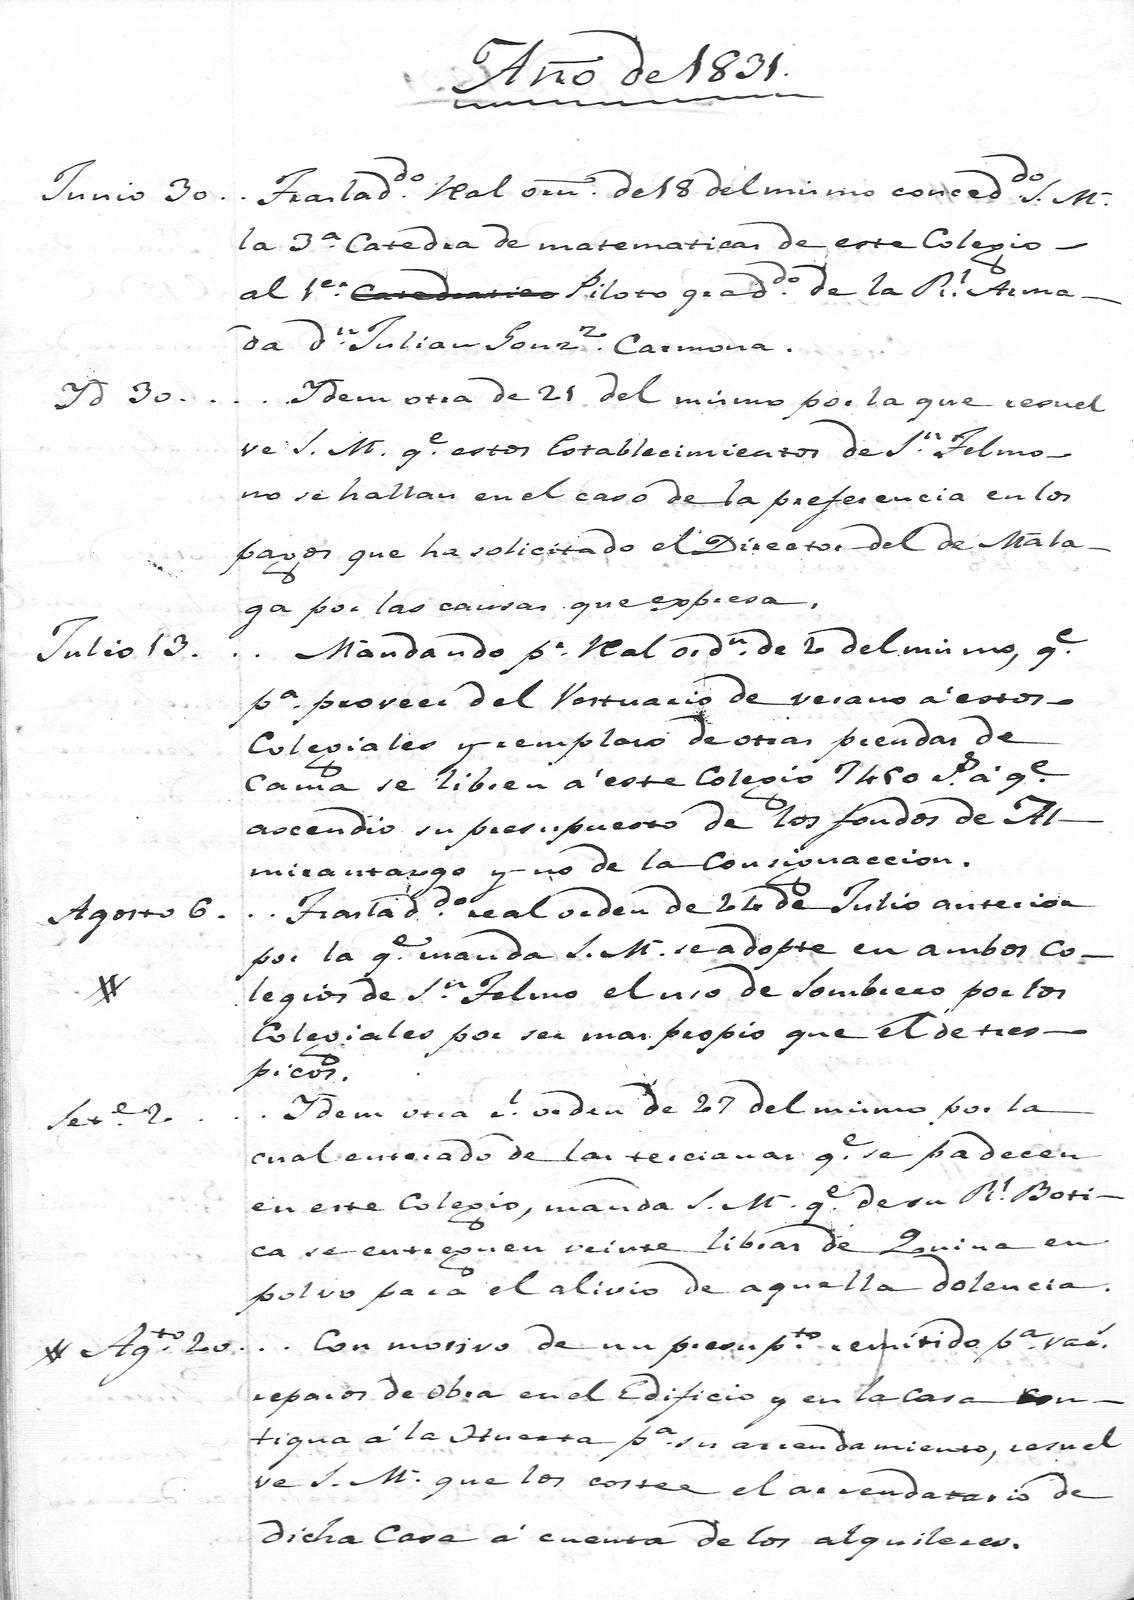 Año de 1831.
Junio 30. . Traslad.do Real orn. de 18 del mismo conced.do S. M.
la 3.a Catedra de matematicas de este Colegio
al 1.er Catedratico Piloto grad.do de la R.l Arma-
da d.n Julian Gonz.z Carmona.
Yd 30. . . . Ydem otra de 21 del mismo por la que resuel
ve S. M. q.e estos Establecimientos de S.n Telmo
no se hallan en el caso de la preferencia en los
pagos que ha solicitado el Director del de Mala-
ga por las causas que expresa.
Julio 13. . . Mandando p.r Real ord.n de 2 del mismo, q.e
p.a proveer del Vestuario de verano á estos
Colegiales y remplazo de otras prendas de
cama se libren á este Colegio 7450 r.s á q.e
ascendio su presupuesto de los fondos de Al-
mirantazgo y no de la Consignaccion.
Agosto 6. . . Traslad.do real orden de 24 de Julio anterior
por la q.e manda S. M. se adopte en ambos Co-
legios de S.n Telmo el uso de Sombrero por los
Colegiales por ser mas propio que el de tres
picos.
Set.e 2. . . . Ydem otra r.l orden de 27 del mismo por la
cual enterado de las tercianas q.e se padecen
en este Colegio, manda S. M. q.e de su R.l Boti-
ca se entreguen veinte libras de Quina en
polvo para el alivio de aquella dolencia.
Ag.to 20. . . Con motivo de un presup.to remitido p.a var.s
reparos de Obra en el Edificio y en la Casa con-
tigua á la Huerta p.a su arrendamiento, resuel
ve S. M. que los costee el arrendatario de
dicha Casa á cuenta de los alquileres.